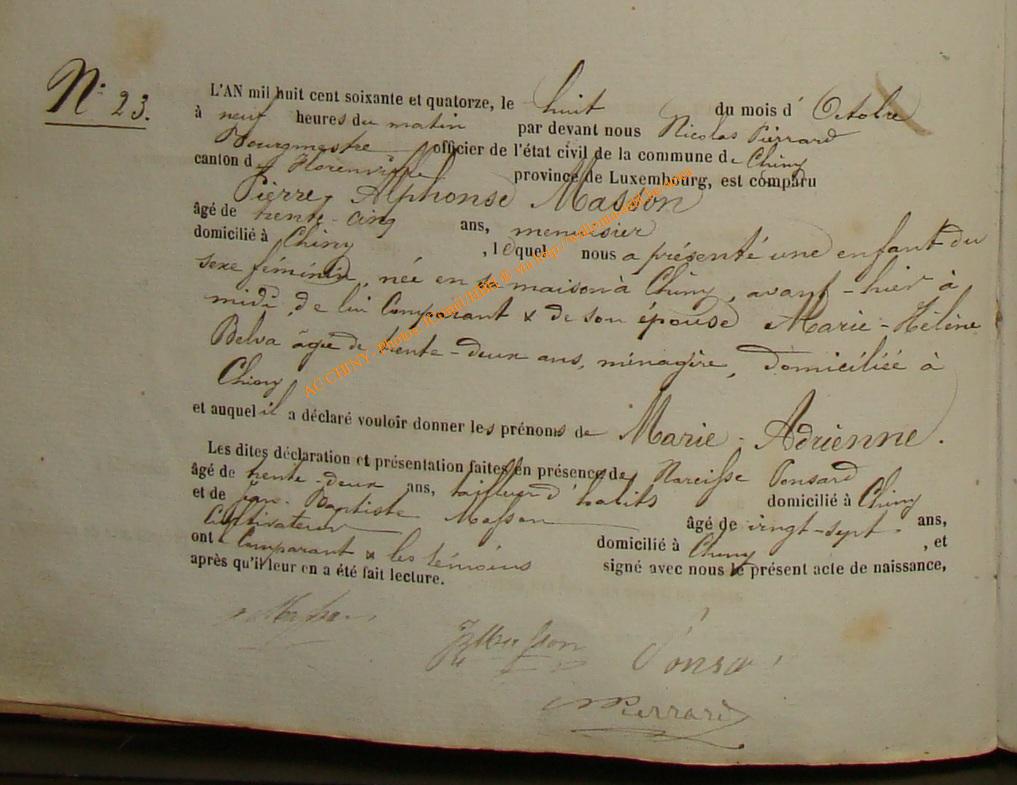 N° 23.
L'AN mil huit cent soixante et quatorze, le huit du mois d' Octobre
à neuf heures du matin par devant nous Nicolas Pierrard
Bourgmestre officier de l'état civil de la commune de Chiny
canton de Florenville province de Luxembourg, est comparu
Pierre Alphonse Masson
âgé de trente-cinq ans, menuisier
domicilié à Chiny, lequel nous a présenté une enfant du
sexe féminin, née en sa maison à Chiny, avant-hier à
midi, de lui Comparant & de son épouse Marie-Hélène
Belva âgée de trente-deux ans, ménagère, domiciliée à
Chiny
et auquel il a déclaré vouloir donner les prénoms de Marie-Adrienne.
Les dites déclaration et présentation faites en présence de Narcisse Ponsard
âgé de trente-deux ans, tailleur d'habits domicilié à Chiny
et de Jean-Baptiste Masson âgé de vingt-sept ans,
Cultivateur domicilié à Chiny, et
ont Comparant & les témoins signé avec nous le présent acte de naissance,
après qu'il leur en a été fait lecture.
Masson
JB Masson
Ponsa
N Pierrard
AC CHINY - Photos